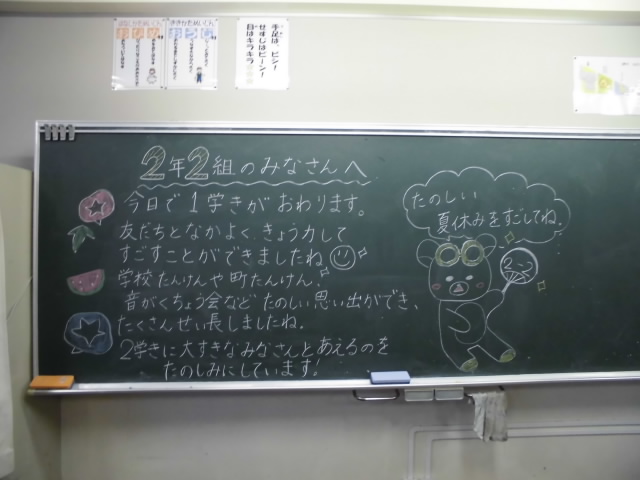 手足は、ピシ！
せすじはピーン！
目はキラキラ
2年2組のみなさんへ
今日で1学きがおわります。
友だちとなかよく、きょう力して
すごすことができましたね
学校たんけんや町たんけん、
音がくちょう会など たのしい思い出ができ、
たくさんせい長しましたね。
2学きに大すきなみなさんとあえるのを
たのしみにしています！
たのしい
夏休みをすごしてね。
2-2